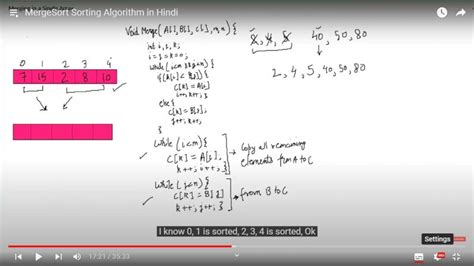 Merging in a Single Array
MergeSort Sorting Algorithm in Hindi
Void Merge( A[], B[], C[], m, n) {
int i, j, k;
i = j = k = 0;
while( i<m && j<n) {
if(A[i] < B[j]) {
C[k] = A[i]
i++, k++; }
else {
C[k] = B[j];
j++, k++; }
}
while (i<m) {
C[k] = A[i];
k++; i++; }
Copy all remaining
elements from A to C
while (j<n) {
C[k] = B[j]
k++; j++; }
from B to C
0 1 2 3 4
7 15 2 8 10
2, 4, 5 40, 50, 80
2, 4, 5, 40, 50, 80
I know 0, 1 is sorted, 2, 3, 4 is sorted, Ok
Settings
17:21 / 35:33